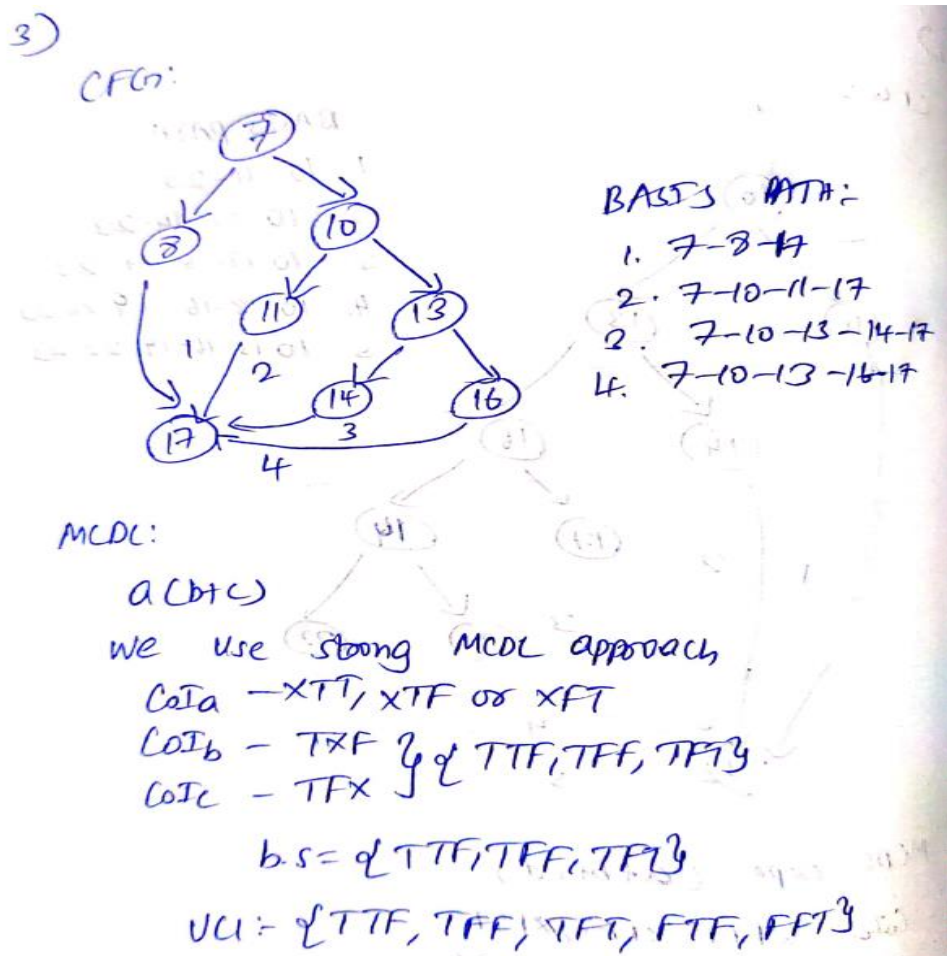 3)
CFG:
7
8
10
11
13
14
16
17
1
2
3
4
BASIS PATH:
1. 7-8-17
2. 7-10-11-17
3. 7-10-13-14-17
4. 7-10-13-16-17
MCDC:
a(b+c)
we use strong MCDC approach
CoIa - XTT, XTF or XFT
CoIb - TXF } { TTF, TFF, TFT}
CoIc - TFX
b.s = {TTF, TFF, TFT}
= {TTF, TFF, TFT, FTF, FFT}